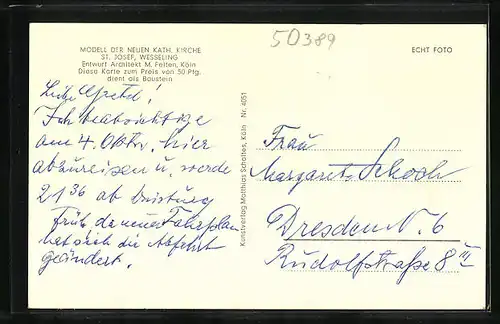 50389
MODELL DER NEUEN KATH. KIRCHE
ST. JOSEF, WESSELING
Entwurf Architekt M. Felten, Köln
Diese Karte zum Preis von 50 Pfg.
dient als Baustein
ECHT FOTO
Liebe Gretel!
Ich beabsichtige
am 4. Oktbr. hier
abzureisen u. werde
21 36 ab Duisburg
neuen Fahrplan
hat sich die Abfahrt
geändert.
Kunstverlag Matthias Scholtes, Köln Nr. 4051
Frau
Margarete Schoch
Dresden N. 6
Rudolfstraße 8 III